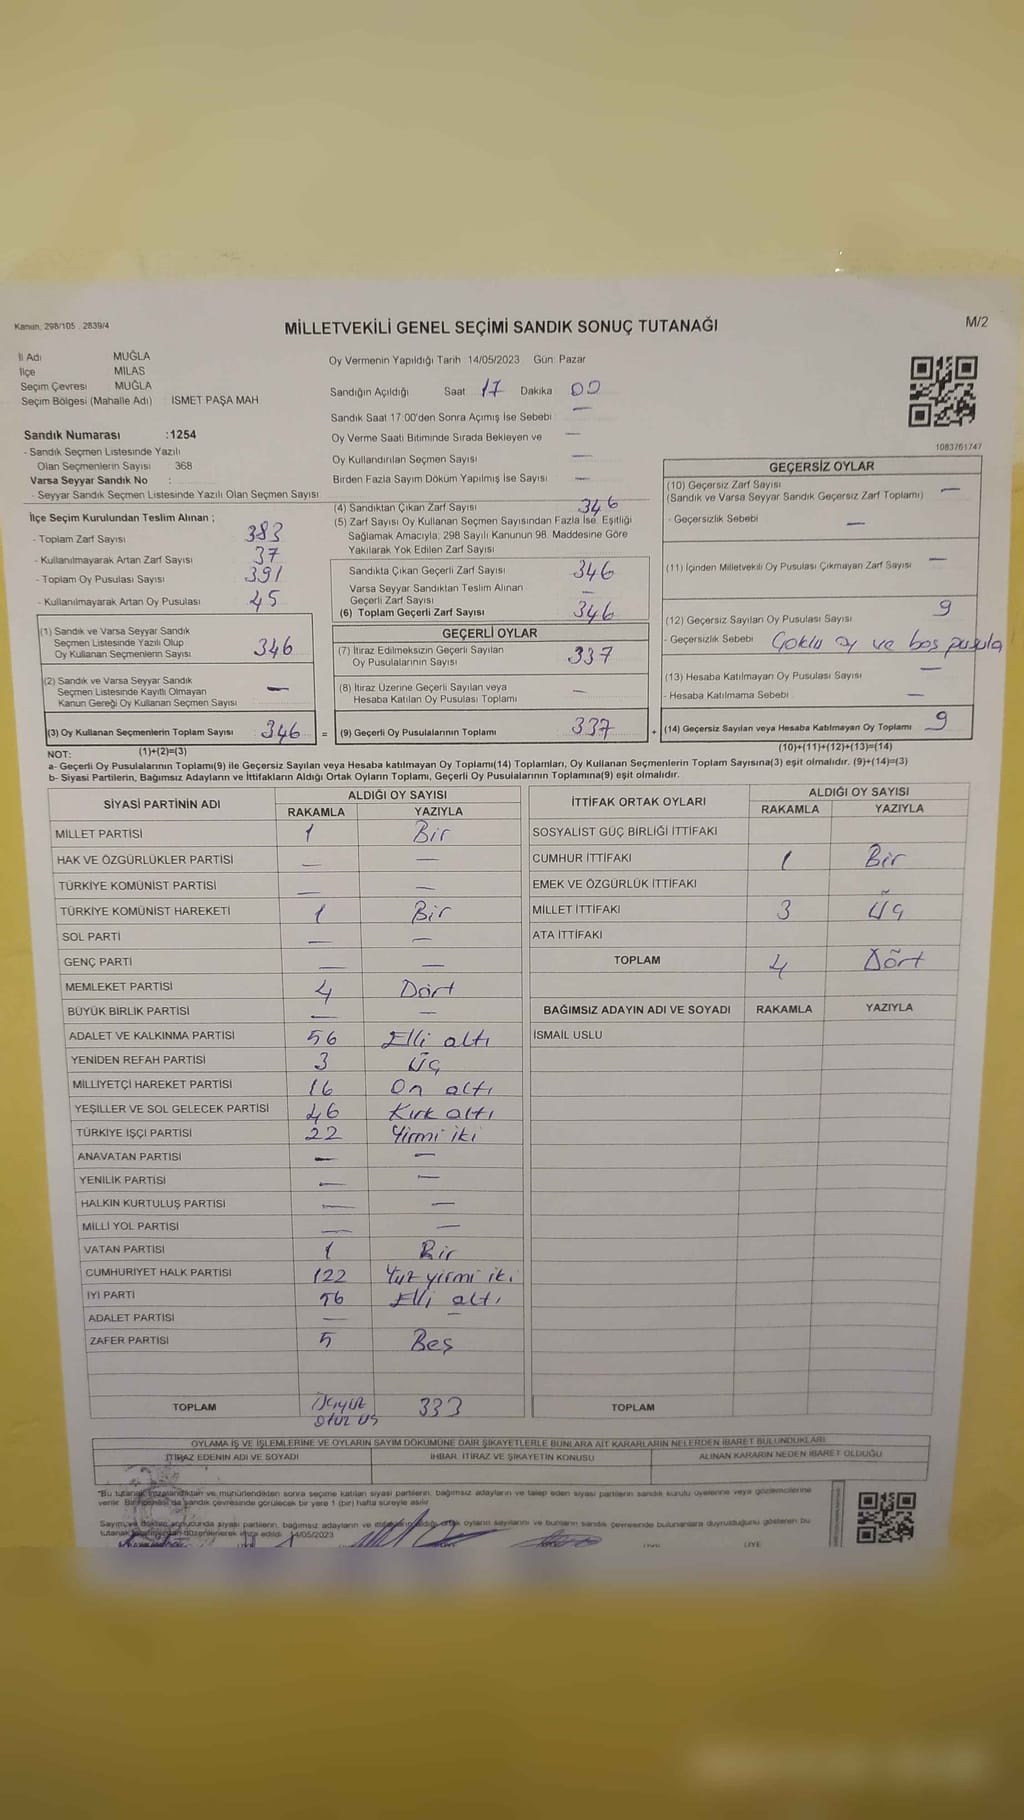 Kanun, 298/105 . 2839/4
MİLLETVEKİLİ GENEL SEÇİMİ SANDIK SONUÇ TUTANAĞI
M/2
İl Adı MUĞLA
İlçe MİLAS
Seçim Çevresi MUĞLA
Seçim Bölgesi (Mahalle Adı) İSMET PAŞA MAH
Sandık Numarası :1254
- Sandık Seçmen Listesinde Yazılı
Olan Seçmenlerin Sayısı 368
Varsa Seyyar Sandık No :
- Seyyar Sandık Seçmen Listesinde Yazılı Olan Seçmen Sayısı
Oy Vermenin Yapıldığı Tarih : 14/05/2023 Gün: Pazar
Sandığın Açıldığı Saat 17 Dakika 00
Sandık Saat 17:00'den Sonra Açımış İse Sebebi —
Oy Verme Saati Bitiminde Sırada Bekleyen ve —
Oy Kullandırılan Seçmen Sayısı —
Birden Fazla Sayım Döküm Yapılmış İse Sayısı —
1083761747
İlçe Seçim Kurulundan Teslim Alınan ;
- Toplam Zarf Sayısı 383
- Kullanılmayarak Artan Zarf Sayısı 37
- Toplam Oy Pusulası Sayısı 391
- Kullanılmayarak Artan Oy Pusulası 45
(1) Sandık ve Varsa Seyyar Sandık
Seçmen Listesinde Yazılı Olup
Oy Kullanan Seçmenlerin Sayısı 346
(2) Sandık ve Varsa Seyyar Sandık
Seçmen Listesinde Kayıtlı Olmayan
Kanun Gereği Oy Kullanan Seçmen Sayısı —
(3) Oy Kullanan Seçmenlerin Toplam Sayısı 346 =
(1)+(2)=(3)
(4) Sandıktan Çıkan Zarf Sayısı 346
(5) Zarf Sayısı Oy Kullanan Seçmen Sayısından Fazla İse, Eşitliği
Sağlamak Amacıyla; 298 Sayılı Kanunun 98. Maddesine Göre
Yakılarak Yok Edilen Zarf Sayısı
Sandıkta Çıkan Geçerli Zarf Sayısı 346
Varsa Seyyar Sandıktan Teslim Alınan
Geçerli Zarf Sayısı —
(6) Toplam Geçerli Zarf Sayısı 346
GEÇERLİ OYLAR
(7) İtiraz Edilmeksizin Geçerli Sayılan
Oy Pusulalarının Sayısı 337
(8) İtiraz Üzerine Geçerli Sayılan veya
Hesaba Katılan Oy Pusulası Toplamı —
(9) Geçerli Oy Pusulalarının Toplamı 337 +
GEÇERSİZ OYLAR
(10) Geçersiz Zarf Sayısı
(Sandık ve Varsa Seyyar Sandık Geçersiz Zarf Toplamı) —
- Geçersizlik Sebebi —
(11) İçinden Milletvekili Oy Pusulası Çıkmayan Zarf Sayısı —
(12) Geçersiz Sayılan Oy Pusulası Sayısı 9
- Geçersizlik Sebebi Çoklu oy ve boş pusula
(13) Hesaba Katılmayan Oy Pusulası Sayısı —
- Hesaba Katılmama Sebebi —
(14) Geçersiz Sayılan veya Hesaba Katılmayan Oy Toplamı 9
(10)+(11)+(12)+(13)=(14)
NOT:
a- Geçerli Oy Pusulalarının Toplamı(9) ile Geçersiz Sayılan veya Hesaba katılmayan Oy Toplamı(14) Toplamları, Oy Kullanan Seçmenlerin Toplam Sayısına(3) eşit olmalıdır. (9)+(14)=(3)
b- Siyasi Partilerin, Bağımsız Adayların ve İttifakların Aldığı Ortak Oyların Toplamı, Geçerli Oy Pusulalarının Toplamına(9) eşit olmalıdır.
SİYASİ PARTİNİN ADI ALDIĞI OY SAYISI
RAKAMLA YAZIYLA
MİLLET PARTİSİ 1 Bir
HAK VE ÖZGÜRLÜKLER PARTİSİ — —
TÜRKİYE KOMÜNİST PARTİSİ — —
TÜRKİYE KOMÜNİST HAREKETİ 1 Bir
SOL PARTİ — —
GENÇ PARTİ — —
MEMLEKET PARTİSİ 4 Dört
BÜYÜK BİRLİK PARTİSİ — —
ADALET VE KALKINMA PARTİSİ 56 Elli altı
YENİDEN REFAH PARTİSİ 3 Üç
MİLLİYETÇİ HAREKET PARTİSİ 16 On altı
YEŞİLLER VE SOL GELECEK PARTİSİ 46 Kırk altı
TÜRKİYE İŞÇİ PARTİSİ 22 Yirmi iki
ANAVATAN PARTİSİ — —
YENİLİK PARTİSİ — —
HALKIN KURTULUŞ PARTİSİ — —
MİLLİ YOL PARTİSİ — —
VATAN PARTİSİ 1 Bir
CUMHURİYET HALK PARTİSİ 122 Yüz yirmi iki
İYİ PARTİ 56 Elli altı
ADALET PARTİSİ — —
ZAFER PARTİSİ 5 Beş
TOPLAM Üçyüz otuz üç 333
İTTİFAK ORTAK OYLARI ALDIĞI OY SAYISI
RAKAMLA YAZIYLA
SOSYALİST GÜÇ BİRLİĞİ İTTİFAKI
CUMHUR İTTİFAKI 1 Bir
EMEK VE ÖZGÜRLÜK İTTİFAKI
MİLLET İTTİFAKI 3 Üç
ATA İTTİFAKI
TOPLAM 4 Dört
BAĞIMSIZ ADAYIN ADI VE SOYADI RAKAMLA YAZIYLA
İSMAİL USLU
TOPLAM
OYLAMA İŞ VE İŞLEMLERİNE VE OYLARIN SAYIM DÖKÜMÜNE DAİR ŞİKAYETLERLE BUNLARA AİT KARARLARIN NELERDEN İBARET BULUNDUKLARI
İTİRAZ EDENİN ADI VE SOYADI İHBAR, İTİRAZ VE ŞİKAYETİN KONUSU ALINAN KARARIN NEDEN İBARET OLDUĞU
"Bu tutanak imzalandıktan ve mühürlendikten sonra seçime katılan siyasi partilerin, bağımsız adayların ve talep eden siyasi partilerin sandık kurulu üyelerine veya gözlemcilerine
verilir. Bir da sandık çevresinde görülecek bir yere 1 (bir) hafta süreyle asılır
Sayım ve döküm sonucunda siyasi partilerin, bağımsız adayların ve ortak oyların sayılarını ve bunların sandık çevresinde bulunanlara duyrulduğunu gösteren bu
tutanak düzenlenerek imza edildi. 14/05/2023
ÜYE